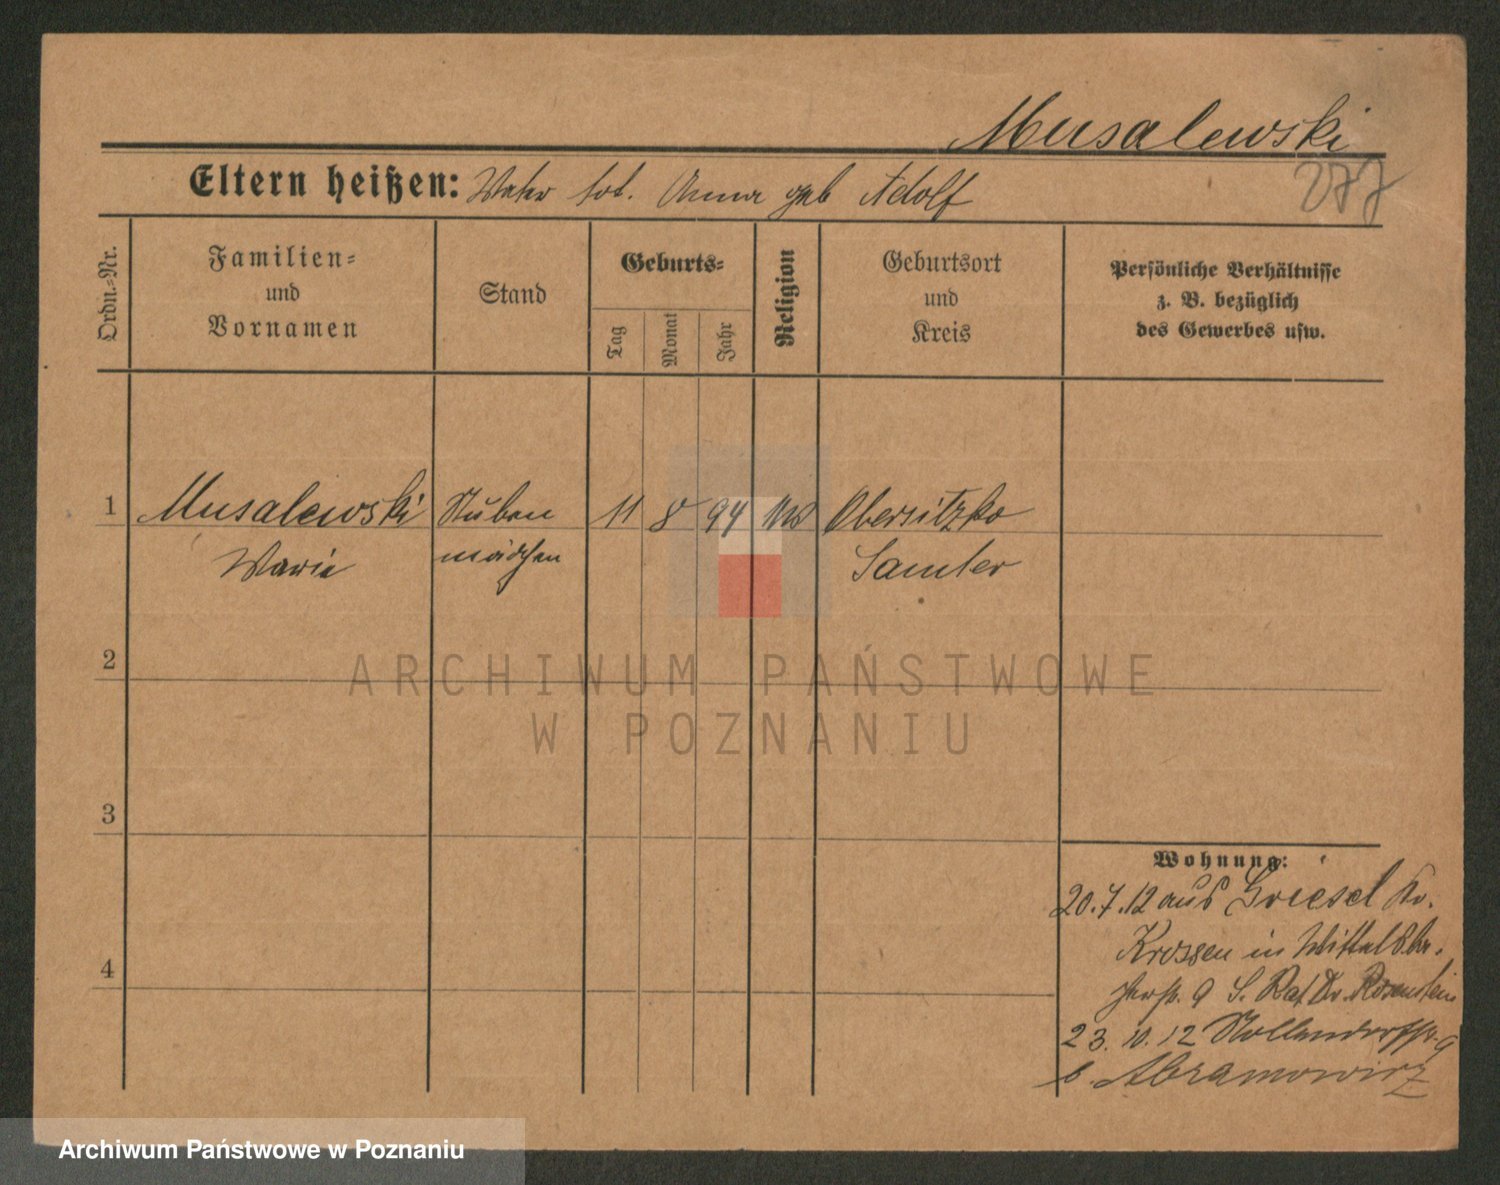 Musalewski
277
Eltern heißen: Vater tot. Anna geb Adolf
Ordn.-Nr.
Familien-
und
Vornamen
Stand
Geburts-
Tag
Monat
Jahr
Religion
Geburtsort
und
Kreis
Persönliche Verhältnisse
z. B. bezüglich
des Gewerbes usw.
1 Musalewski Stuben 11 8 94 Obersitzko
Marie mädchen Samter
2
ARCHIWUM PAŃSTWOWE
W POZNANIU
3
4
Wohnung:
20.7.12 aus Griesel Kr.
Krossen in
9 S. Rat Dr. Rosenstein
23.10.12 9
b. Abramowicz
Archiwum Państwowe w Poznaniu